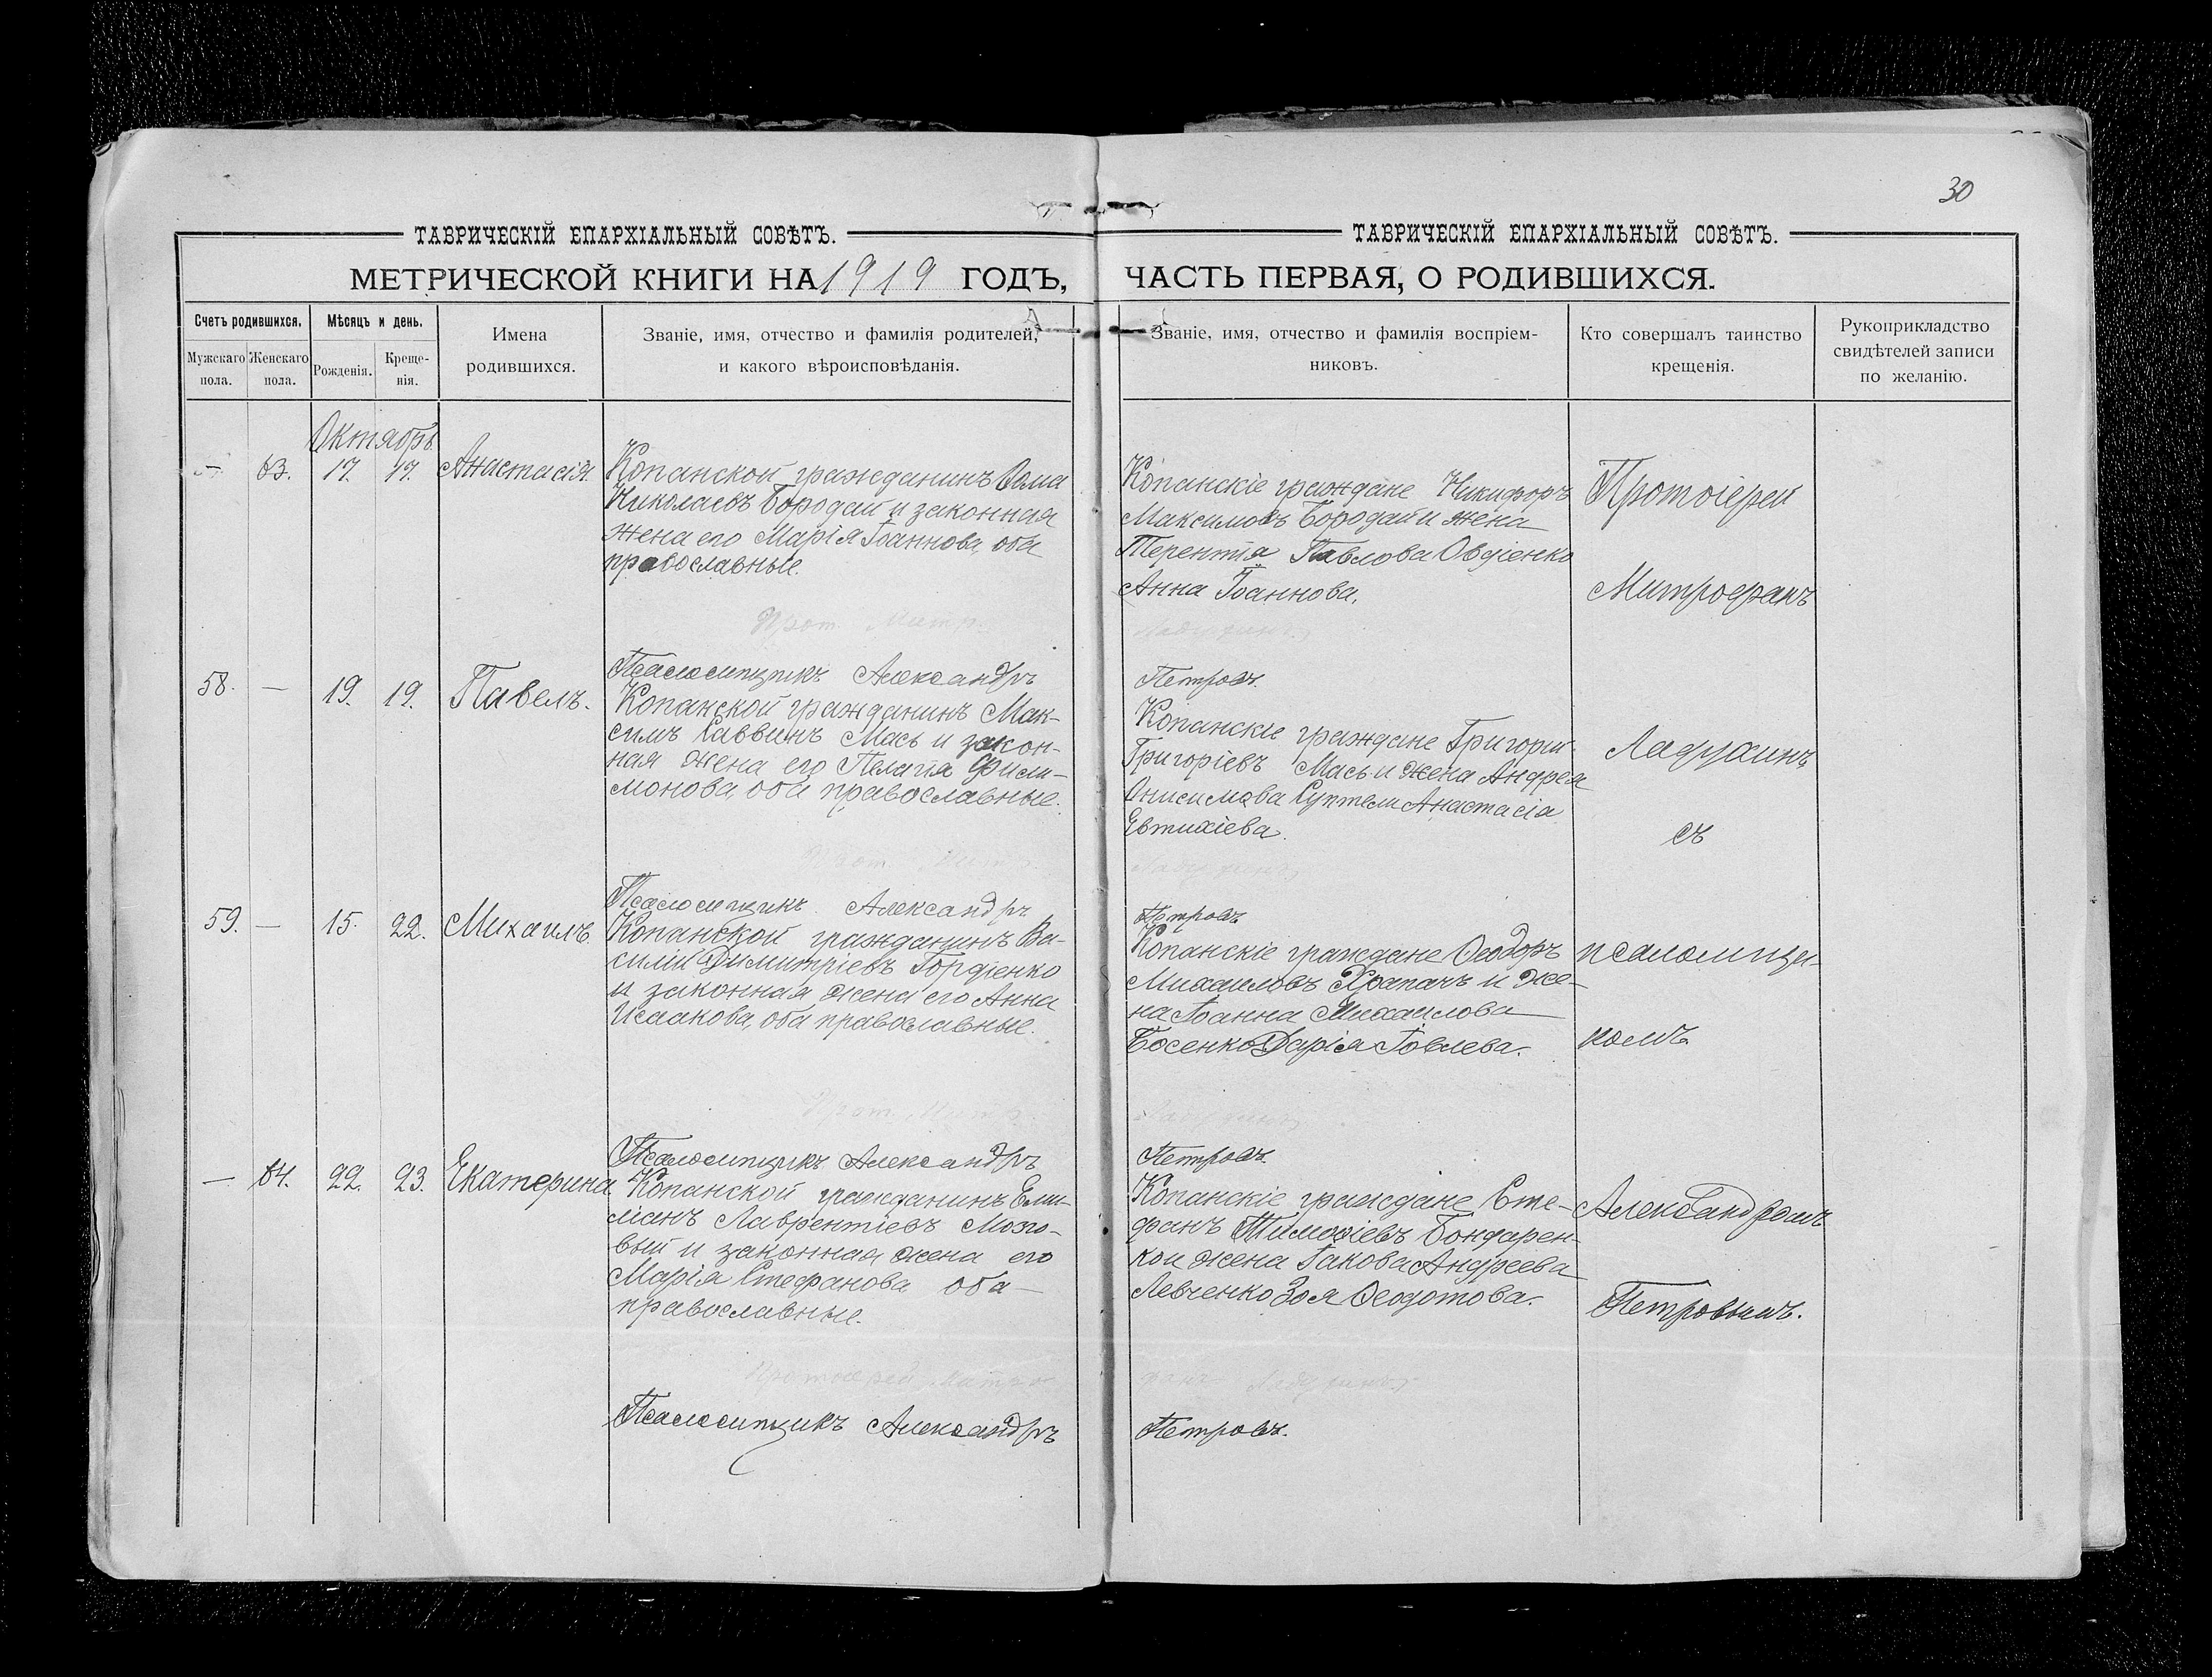 30
ТАВРИЧЕСКІЙ ЕПАРХІАЛЬНЫЙ СОВѢТЪ.
МЕТРИЧЕСКОЙ КНИГИ НА 1919 ГОДЪ,
Счетъ родившихся.
Мѣсяцъ и день.
Имена родившихся.
Званіе, имя, отчество и фамилія родителей,
и какого вѣроисповѣданія.
Мужскаго пола.
Женскаго пола.
Рожденія.
Креще-
нія.
ТАВРИЧЕСКІЙ ЕПАРХІАЛЬНЫЙ СОВѢТЪ.
ЧАСТЬ ПЕРВАЯ, О РОДИВШИХСЯ.
Званіе, имя, отчество и фамилія воспріем-
никовъ.
Кто совершалъ таинство
крещенія.
Рукоприкладство
свидѣтелей записи
по желанію.
Октябрь
— 63. 17. 17. Анастасія.
Копанской гражданинъ Ѳома
Николаевъ Бородай и законная
жена его Марія Іоаннова, оба
православные.
Прот. Митр.
Псаломщикъ Александръ
58. — 19. 19. Павелъ.
Копанской гражданинъ Мак-
симъ Саввинъ Мась и закон-
ная жена его Пелагія Фили-
монова, оба православные.
Прот. Митр.
Псаломщикъ Александръ
59. — 15. 22. Михаилъ.
Копанской гражданинъ Ва-
силій Димитріевъ Гордіенко
и законная жена его Анна
Исаакова, оба православные.
Прот. Митр.
Псаломщикъ Александръ
— 64. 22. 23. Екатерина
Копанской гражданинъ Еми-
ліанъ Лаврентіевъ Мозго-
вый и законная жена его
Марія Стефанова оба
православные.
Протоіерей Митро
Псаломщикъ Александръ
Копанскіе граждане Никифоръ
Максимовъ Бородай и жена
Терентія Павлова Овдіенко
Анна Іоаннова.
Петровъ.
Копанскіе граждане Григорій
Григоріевъ Мась и жена Андрея
Онисимова Анастасія
Евтихіева.
Петровъ
Копанскіе граждане Ѳеодоръ
Михаиловъ Храпачъ и же-
на Іоанна Михаилова
Босенко Дарія Іовлева.
Петровъ.
Копанскіе граждане Сте-
фанъ Тимоѳіевъ Бондарен-
ко и жена Іакова Андреева
Левченко Зоя Ѳеодотова.
фанъ
Петровъ.
Протоіерей
Митрофанъ
съ
псаломщи-
комъ
Александромъ
Петровымъ.